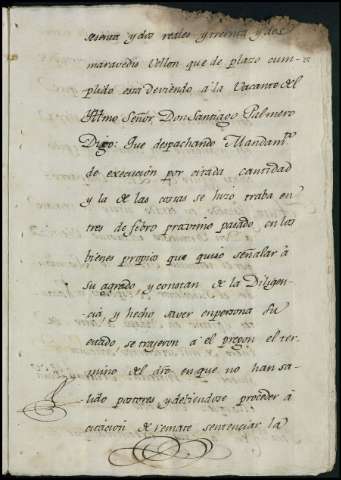 sesenta y dos reales y treinta y dos
maravedis Vellon que de plazo cum=
plido esta deviendo â la Vacante del
Yllmo Señor, Don Santiago Palmero
Digo: Que despachando Mandam.to
de execucion por citada cantidad
y la de las costas se hizo traba en
tres de febro proximo pasado, en los
bienes propios que quiso señalar â
su agrado, y constan de la Diligen=
cia, y hecho saver enpersona su
estado, se trajeron â el pregon el ter
mino del dro, en que no han sa=
lido postores y deviendose proceder â
citacion de remate sentenciar la